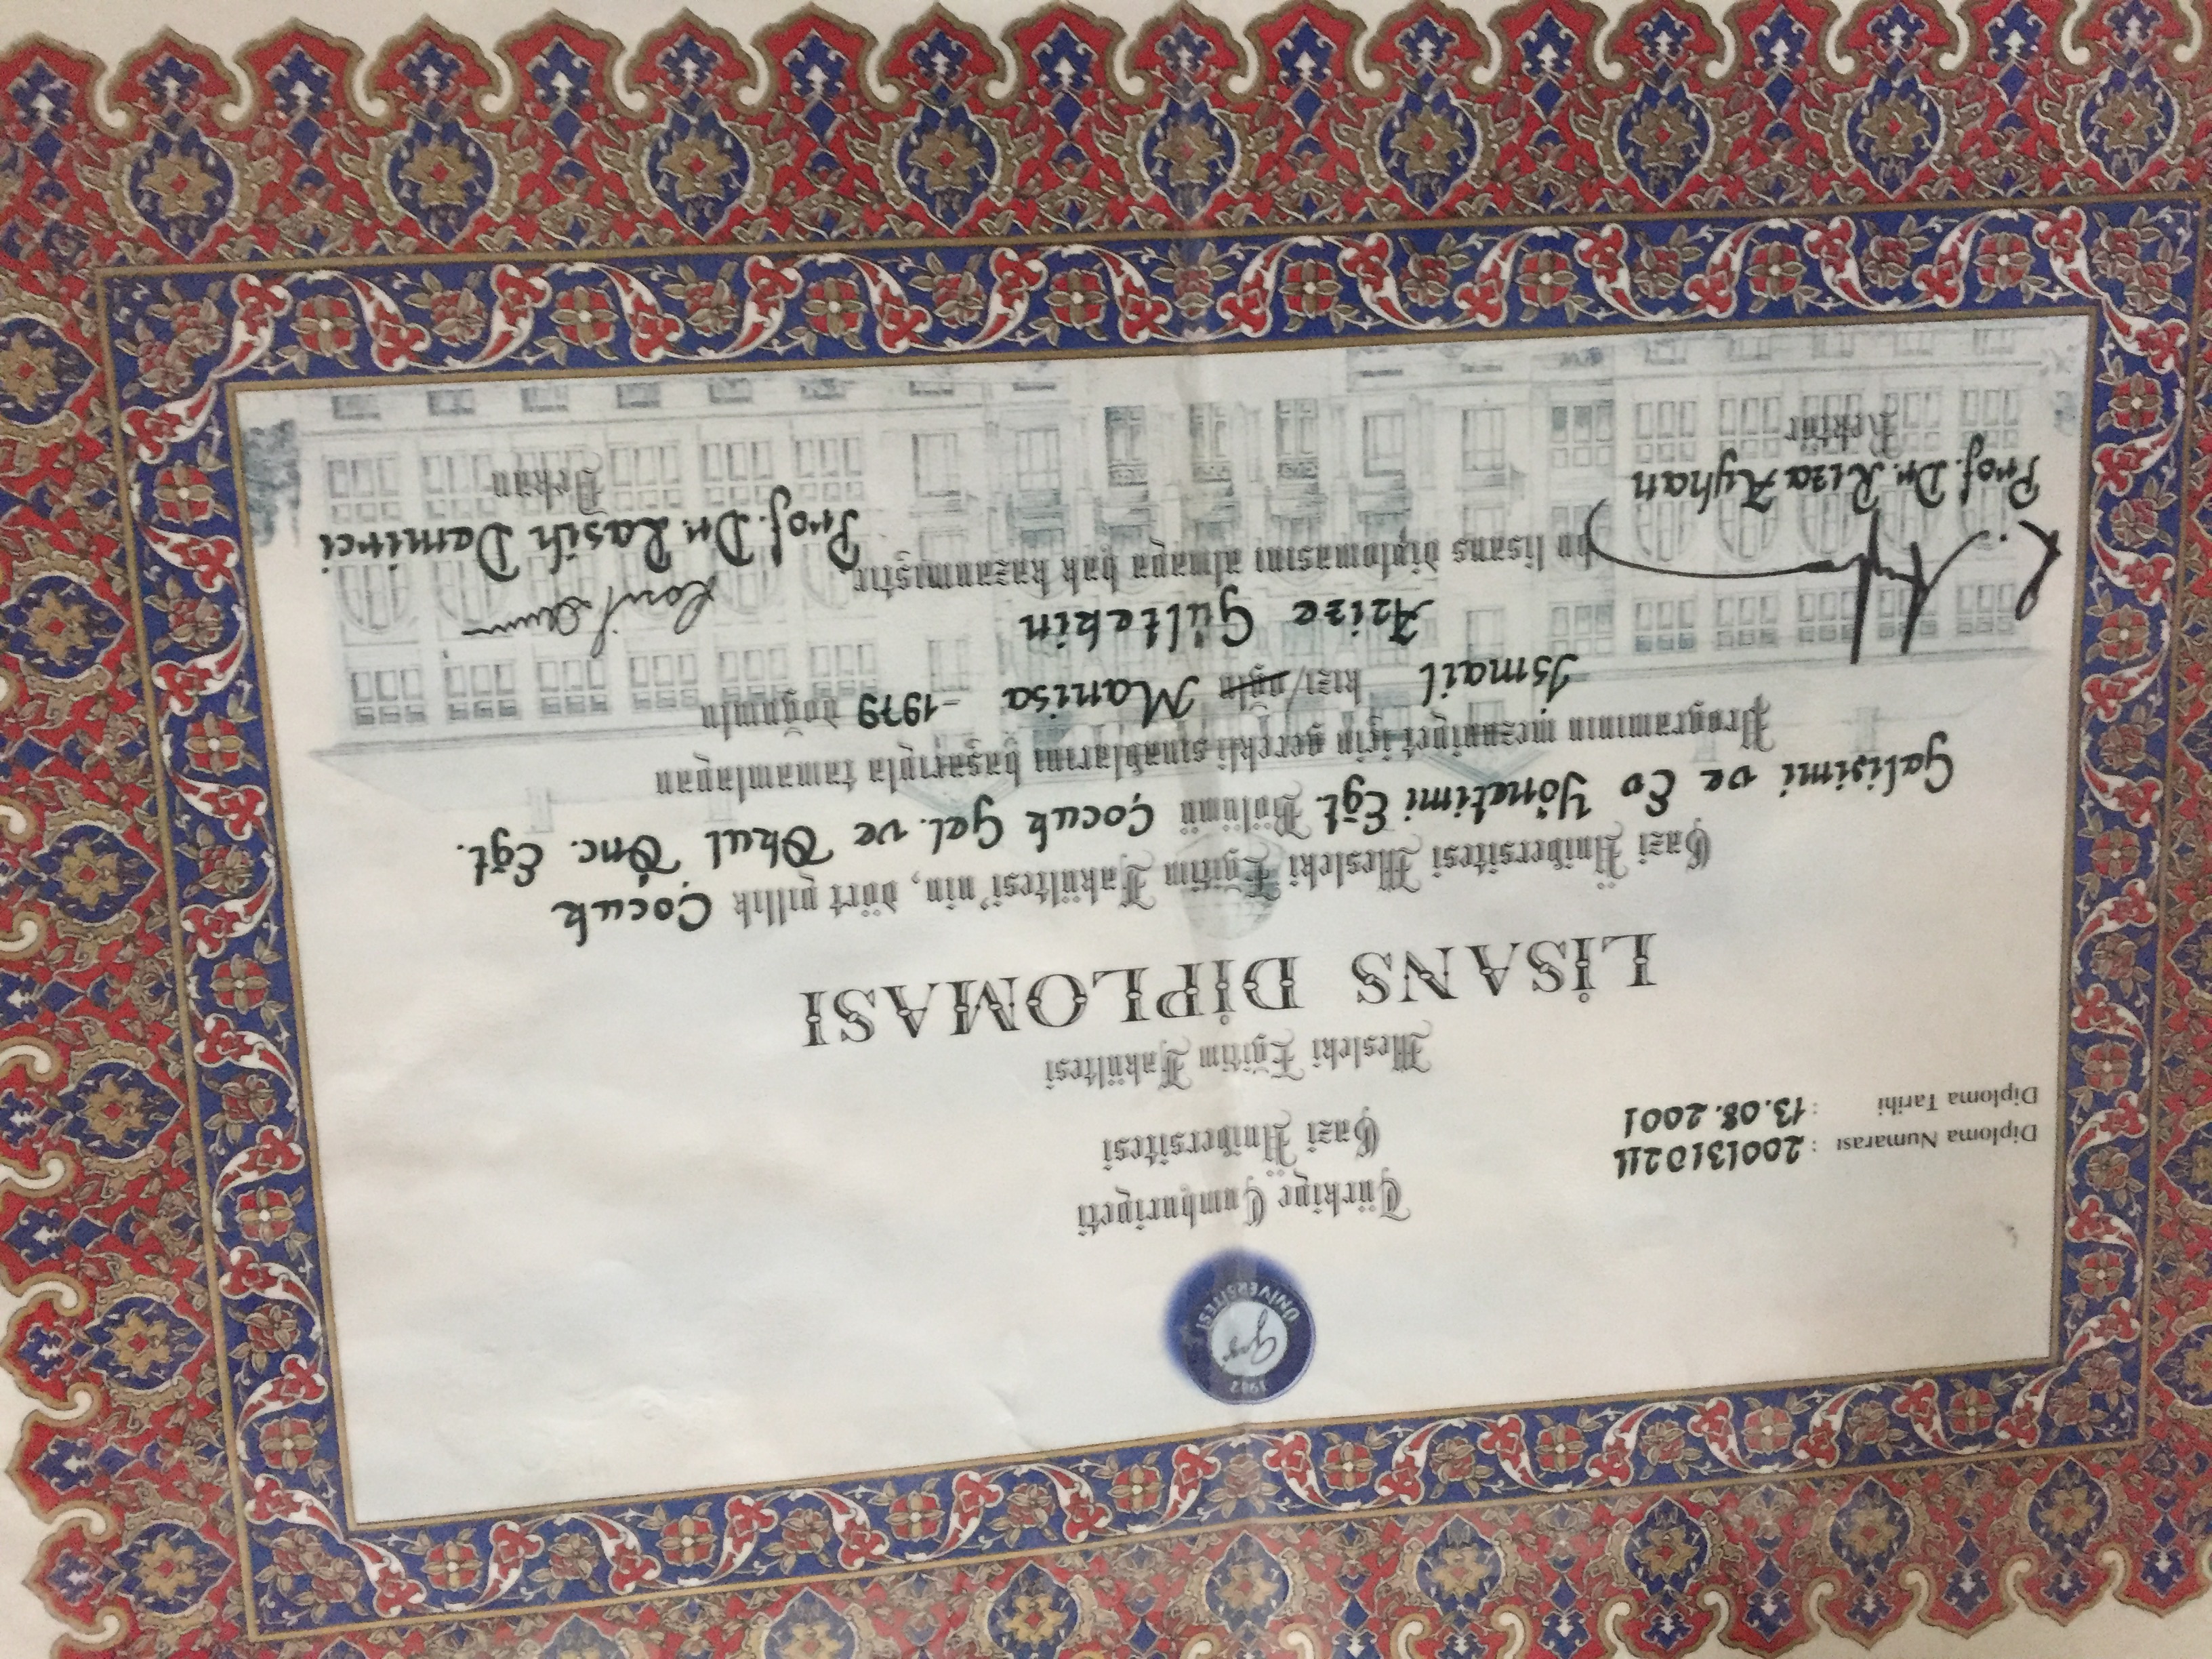 1982
Gazi
ÜNİVERSİTESİ
Türkiye Cumhuriyeti
Gazi Üniversitesi
Mesleki Eğitim Fakültesi
Diploma Numarası : 2001310211
Diploma Tarihi : 13.08.2001
LİSANS DİPLOMASI
Gazi Üniversitesi Mesleki Eğitim Fakültesi'nin, dört yıllık Çocuk
Gelişimi ve Ev Yönetimi Eğt. Bölümü Çocuk Gel. ve Okul Önc. Eğt.
Programının mezuniyet için gerekli sınavlarını başarıyla tamamlayan
İsmail kızı/oğlu Manisa - 1979 doğumlu
Azize Gültekin
bu lisans diplomasını almaya hak kazanmıştır.
Prof. Dr. Rıza Ayhan
Rektör
Prof. Dr. Rasih Demirci
Dekan